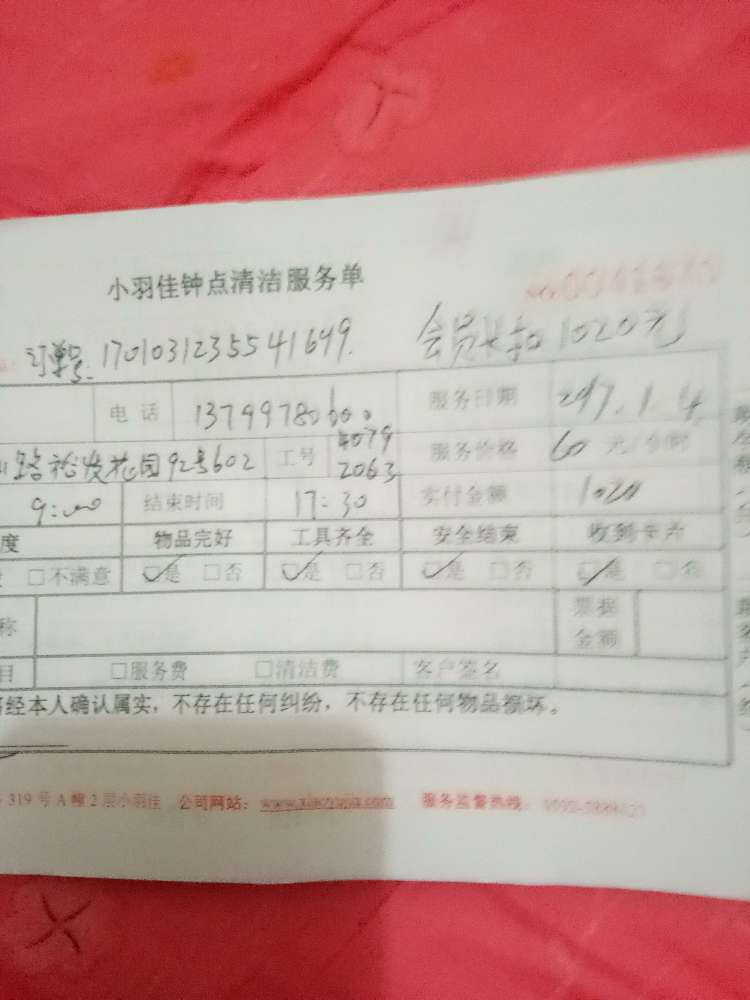 小羽佳钟点清洁服务单
订单号: 1701031235541649. 会员卡扣1020元
电话 13799780600 服务日期 2017.1.4
路裕发花园92号602 工号 4079 2063 服务价格 60 元/小时
9:00 结束时间 17:30 实付金额 1020
度 物品完好 工具齐全 安全结束 收到卡片
□不满意 ☑是 □否 ☑是 □否 ☑是 □否 ☑是 □否
称 票据金额
目 □服务费 □清洁费 客户签名
经本人确认属实，不存在任何纠纷，不存在任何物品损坏。
319号A幢2层小羽佳 公司网站： 服务监督热线：